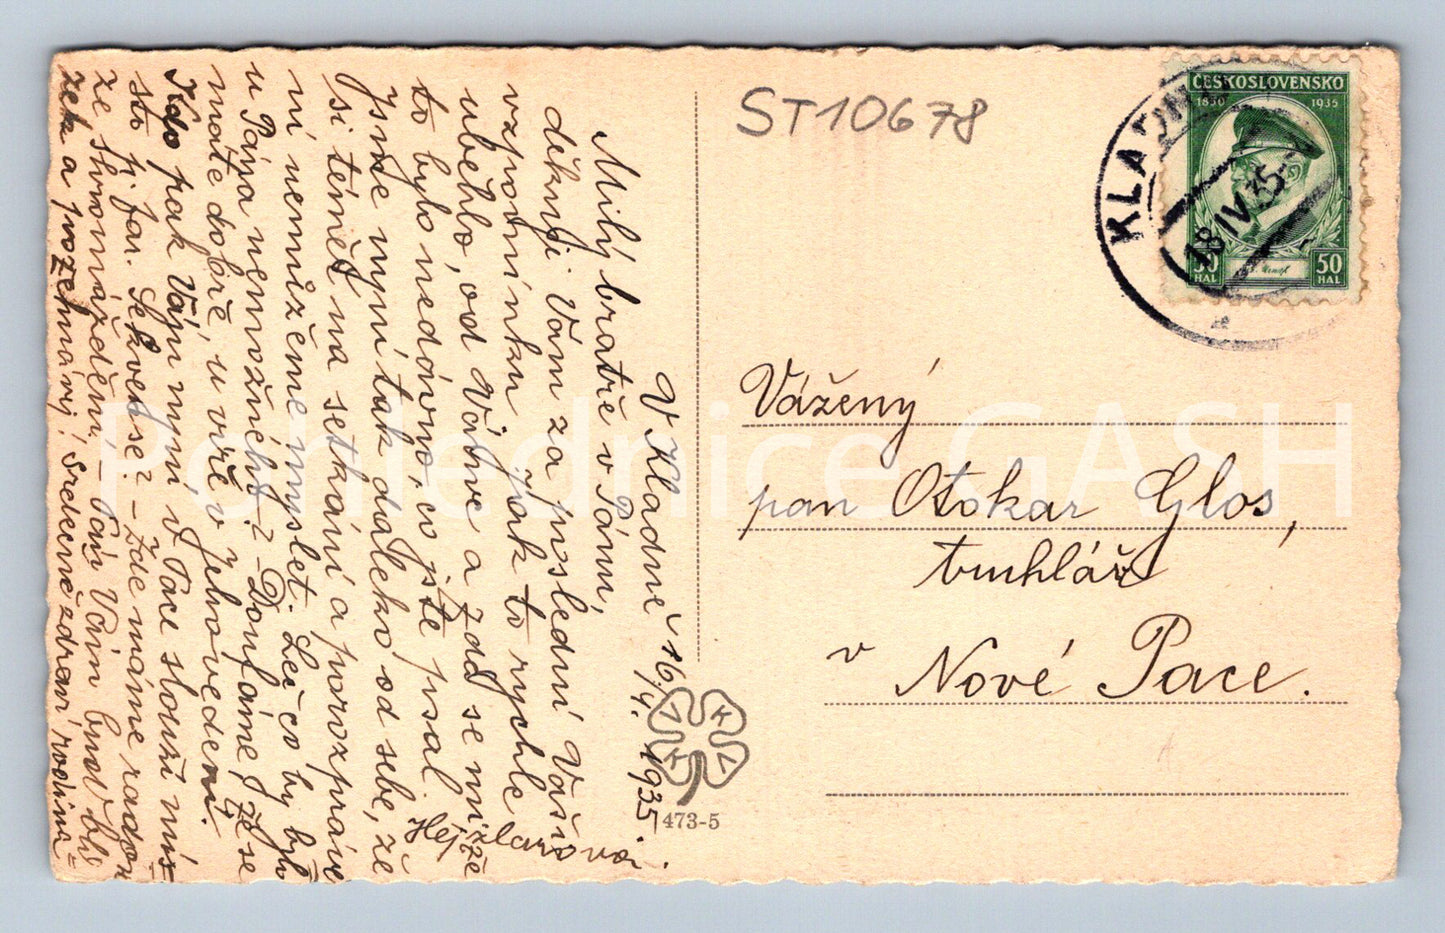 V Kladně 16./4. 1935
Milý bratře v Pánu,
děkuji Vám za poslední Vaši
vzpomínku. Jak to rychle
uběhlo, od Vánoc a zdá se mi, že
to bylo nedávno, co jste psal.
Jsme nyní tak daleko od sebe, že
si téměř na setkání a porozpráve
ní nemůžeme myslet. Leč co by bylo
u Pána nemožného? – Doufáme, že se
máte dobře, u víře v Jehovu
Kdo pak Vám nyní v Pace slouží mís=
sto fr. far. – Zde máme rados
ze shromáždění. – Pán Vám buď blí
zek a požehnaný! Srdečně zdraví rodina=
Hejzlarova.
ST10678
ČESKOSLOVENSKO
1850 1935
50 HAL
50 HAL
KLADNO
18.IV.35
Vážený
pan Otokar Glos,
truhlář
v Nové Pace.
V K K V
473-5
Pohlednice GASH